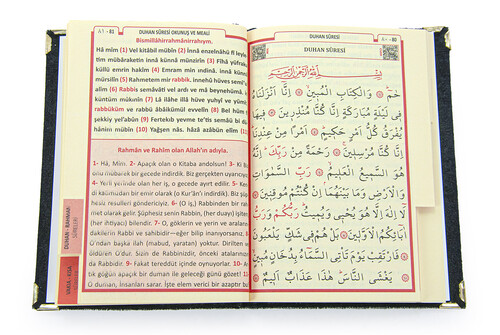 A 1 - 81
DUHAN SÛRESİ OKUNUŞ VE MEALİ
Bismillâhirrahmânirrahıym.
Hâ mîm (1) Vel kitâbil mübîn (2) İnnâ enzelnâhü fî leyle
tim mübâraketin innâ künnâ münzirîn (3) Fîhâ yüfraku
küllü emrin hakîm (4) Emram min ındinâ innâ künnâ
mürsilîn (5) Rahmetem mir rabbik, innehû hüves semî'ul
alîm (6) Rabbis semâvâti vel ardı ve mâ beynehümâ, in
küntüm mûkınîn (7) Lâ ilâhe illâ hüve yuhyî ve yümît,
rabbüküm ve rabbü âbâikümül evvelîn (8) Bel hüm fî
şekkiy yel'abûn (9) Fertekıb yevme te'tis semâü bi dü
hânim mübîn (10) Yağşen nâs, hâzâ azâbün elîm (11)
Rahmân ve Rahîm olan Allah'ın adıyla.
1- Hâ, Mîm. 2- Apaçık olan o Kitaba andolsun! 3- Ki Biz
onu mübarek bir gecede indirdik. Biz gerçekten uyarıcıyız.
4- Yerli yerinde olan her iş, o gecede ayırt edilir. 5-
ki katımızdan bir emir olarak (o Kur'ân'ı indirdik). Biz
resûlleri göndericiyiz. 6- (O iş,) Rabbinden bir rah
met olarak gelir. Şüphesiz senin Rabbin, (her duayı) işiten
(her ihtiyacı) bilendir. 7- O, göklerin ve yerin ve araların
dakilerin Rabbi ve sahibidir—eğer bilip inanıyorsanız.
O'ndan başka ilah (mabud, yaratan) yoktur. Dirilten ve
öldüren O'dur. Sizin de Rabbinizdir, önceki atalarınızın
da Rabbidir. 9- Fakat tereddüt içinde oynuyorlar. 10-
tık göğün apaçık bir duman ile geleceği günü gözet!
11- (Duman) İnsanları sarar. İşte elem verici bir azaptır
DUHAN - RAHMAN
SÛRELERİ
DUHAN SÛRESİ
A - 80
DUHAN SÛRESİ
بِسْمِ اللّٰهِ الرَّحْمٰنِ الرَّحِيمِ
حٰمٓ ﴿١﴾ وَالْكِتَابِ الْمُبِينِ ﴿٢﴾ اِنَّٓا اَنْزَلْنَاهُ
فِي لَيْلَةٍ مُبَارَكَةٍ اِنَّا كُنَّا مُنْذِرِينَ ﴿٣﴾ فِيهَا
يُفْرَقُ كُلُّ اَمْرٍ حَكِيمٍ ﴿٤﴾ اَمْرًا مِنْ عِنْدِنَا
اِنَّا كُنَّا مُرْسِلِينَ ﴿٥﴾ رَحْمَةً مِنْ رَبِّكَ اِنَّهُ
هُوَ السَّمِيعُ الْعَلِيمُ ﴿٦﴾ رَبِّ السَّمٰوَاتِ
وَالْاَرْضِ وَمَا بَيْنَهُمَا اِنْ كُنْتُمْ مُوقِنِينَ ﴿٧﴾
لَٓا اِلٰهَ اِلَّا هُوَ يُحْيِي وَيُمِيتُ رَبُّكُمْ وَرَبُّ
اٰبَٓائِكُمُ الْاَوَّلِينَ ﴿٨﴾ بَلْ هُمْ فِي شَكٍّ يَلْعَبُونَ ﴿٩﴾
فَارْتَقِبْ يَوْمَ تَأْتِي السَّمَٓاءُ بِدُخَانٍ مُبِينٍ ﴿١٠﴾
يَغْشَى النَّاسَ هٰذَا عَذَابٌ اَلِيمٌ ﴿١١﴾